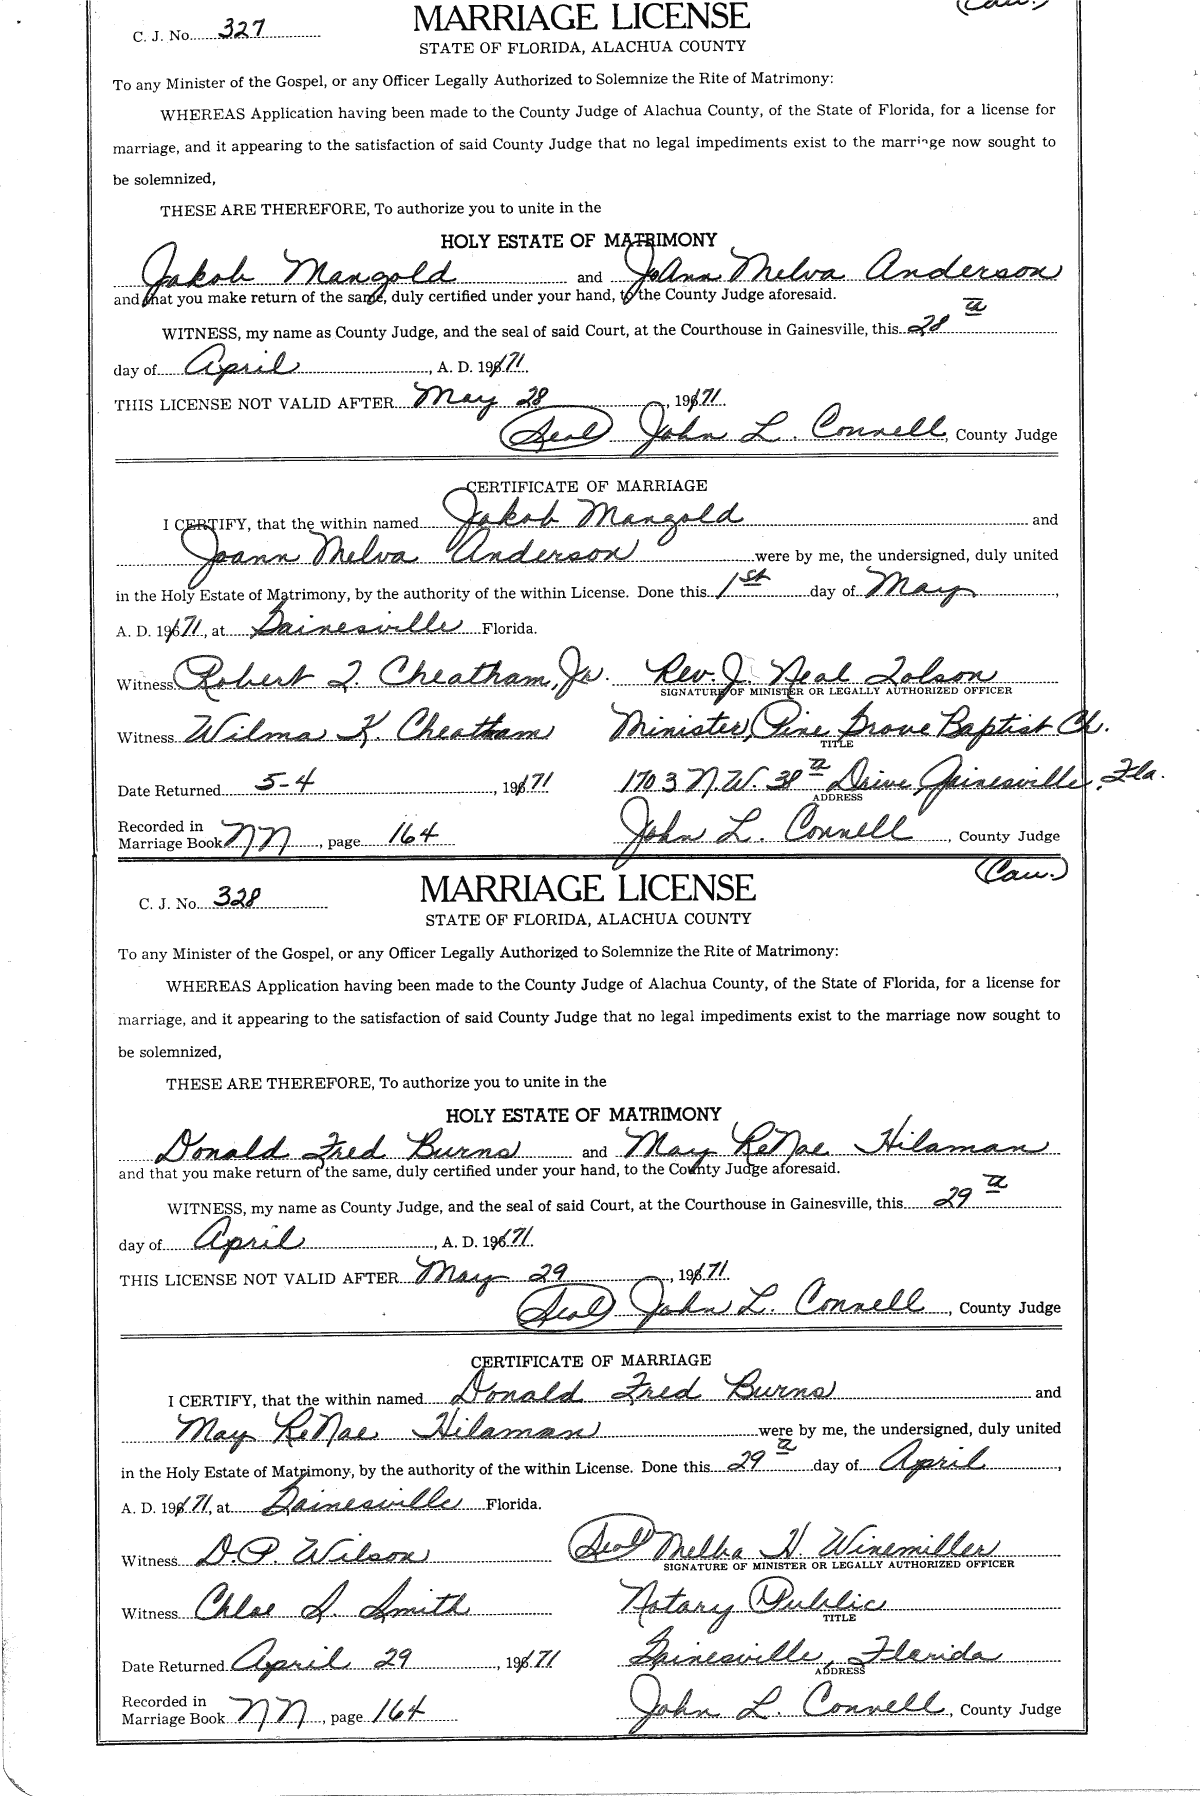 (Cau.)
C. J. No. 327
MARRIAGE LICENSE
STATE OF FLORIDA, ALACHUA COUNTY
To any Minister of the Gospel, or any Officer Legally Authorized to Solemnize the Rite of Matrimony:
WHEREAS Application having been made to the County Judge of Alachua County, of the State of Florida, for a license for
marriage, and it appearing to the satisfaction of said County Judge that no legal impediments exist to the marriage now sought to
be solemnized,
THESE ARE THEREFORE, To authorize you to unite in the
HOLY ESTATE OF MATRIMONY
Jakob Mangold and JoAnn Melva Anderson
and that you make return of the same, duly certified under your hand, to the County Judge aforesaid.
WITNESS, my name as County Judge, and the seal of said Court, at the Courthouse in Gainesville, this 28th
day of April, A. D. 19671
THIS LICENSE NOT VALID AFTER May 28, 19671
Seal John L. Connell, County Judge
CERTIFICATE OF MARRIAGE
I CERTIFY, that the within named Jakob Mangold and
Joann Melva Anderson were by me, the undersigned, duly united
in the Holy Estate of Matrimony, by the authority of the within License. Done this 1st day of May,
A. D. 19671, at Gainesville Florida.
Witness Robert L. Cheatham, Jr. Rev. J. Neal Tolson
SIGNATURE OF MINISTER OR LEGALLY AUTHORIZED OFFICER
Witness Wilma K. Cheatham Minister, Pine Grove Baptist Ch.
TITLE
Date Returned 5-4, 19671 1703 N.W. 38th Drive, Gainesville, Fla.
ADDRESS
Recorded in
Marriage Book NN, page 164 John L. Connell, County Judge
(Cau.)
C. J. No. 328
MARRIAGE LICENSE
STATE OF FLORIDA, ALACHUA COUNTY
To any Minister of the Gospel, or any Officer Legally Authorized to Solemnize the Rite of Matrimony:
WHEREAS Application having been made to the County Judge of Alachua County, of the State of Florida, for a license for
marriage, and it appearing to the satisfaction of said County Judge that no legal impediments exist to the marriage now sought to
be solemnized,
THESE ARE THEREFORE, To authorize you to unite in the
HOLY ESTATE OF MATRIMONY
Donald Fred Burns and May ReNae Hilaman
and that you make return of the same, duly certified under your hand, to the County Judge aforesaid.
WITNESS, my name as County Judge, and the seal of said Court, at the Courthouse in Gainesville, this 29th
day of April, A. D. 19671
THIS LICENSE NOT VALID AFTER May 29, 19671
Seal John L. Connell, County Judge
CERTIFICATE OF MARRIAGE
I CERTIFY, that the within named Donald Fred Burns and
May ReNae Hilaman were by me, the undersigned, duly united
in the Holy Estate of Matrimony, by the authority of the within License. Done this 29th day of April,
A. D. 19671, at Gainesville Florida.
Witness D.P. Wilson Seal Melba H. Winemiller
SIGNATURE OF MINISTER OR LEGALLY AUTHORIZED OFFICER
Witness Chloe S. Smith Notary Public
TITLE
Date Returned April 29, 19671 Gainesville, Florida
ADDRESS
Recorded in
Marriage Book NN, page 164 John L. Connell, County Judge